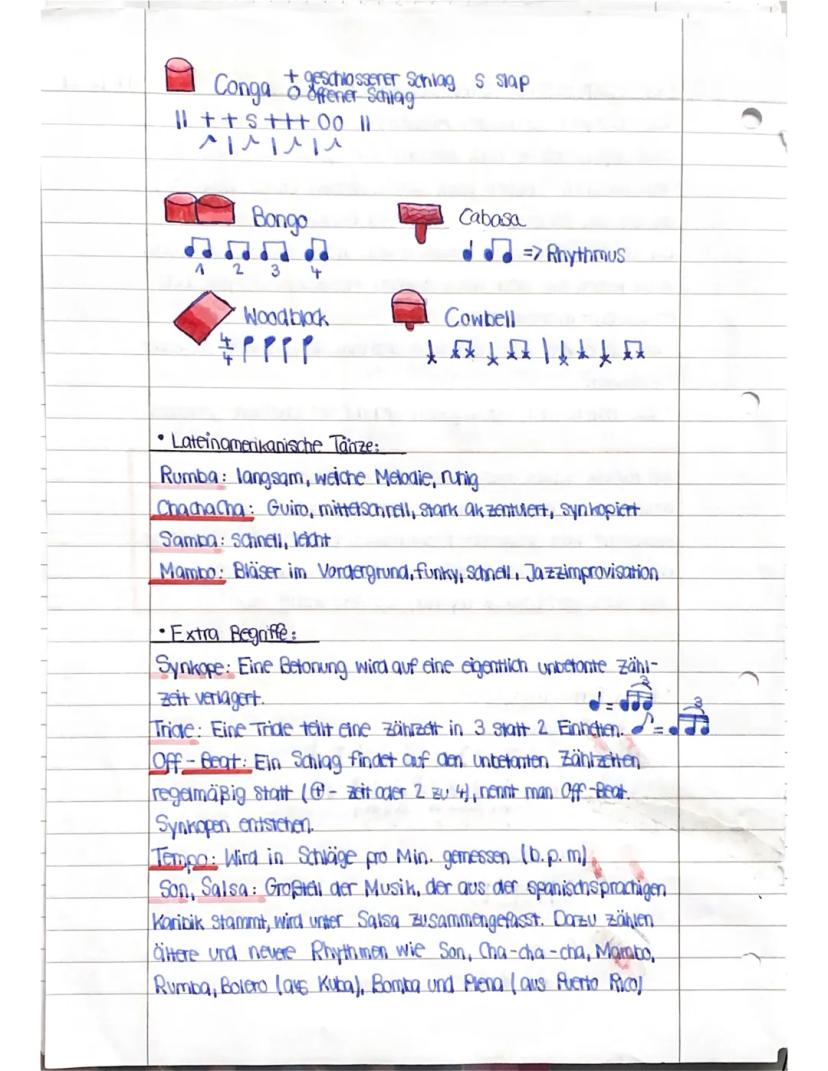 Conga + geschlossener Schlag s slap
O offener Schlag
|| + + s + + + O O ||
Bongo
1 2 3 4
Cabasa
=> Rhythmus
Woodblock
4/4
Cowbell
• Lateinamerikanische Tänze:
Rumba: langsam, weiche Melodie, ruhig
ChaChaCha: Guiro, mittelschnell, stark akzentuiert, synkopiert
Samba: schnell, leicht
Mambo: Bläser im Vordergrund, funky, schnell, Jazzimprovisation
• Extra Begriffe:
Synkope: Eine Betonung wird auf eine eigentlich unbetonte Zähl-
zeit verlagert.
Triole: Eine Triole teilt eine Zählzeit in 3 statt 2 Einheiten.
3
3
Off-Beat: Ein Schlag findet auf den unbetonten Zählzeiten
regelmäßig statt (⊕- zeit oder 2 zu 4), nennt man Off-Beat.
Synkopen entstehen.
Tempo: Wird in Schläge pro Min. gemessen (b.p.m)
Son, Salsa: Großteil der Musik, der aus der spanischsprachigen
Karibik stammt, wird unter Salsa zusammengefasst. Dazu zählen
ältere und neuere Rhythmen wie Son, Cha-cha-cha, Mambo,
Rumba, Bolero (aus Kuba), Bomba und Plena (aus Puerto Rico)